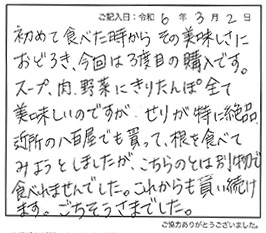 ご記入日：令和 6 年 3 月 2 日
初めて食べた時から その美味しさに
おどろき、今回は3度目の購入です。
スープ、肉、野菜にきりたんぽ全て
美味しいのですが、せりが特に絶品。
近所の八百屋でも買って、根を食べて
みようとしましたが、こちらのとは別物で
食べれませんでした。これからも買い続け
ます。ごちそうさまでした。
ご協力ありがとうございました。